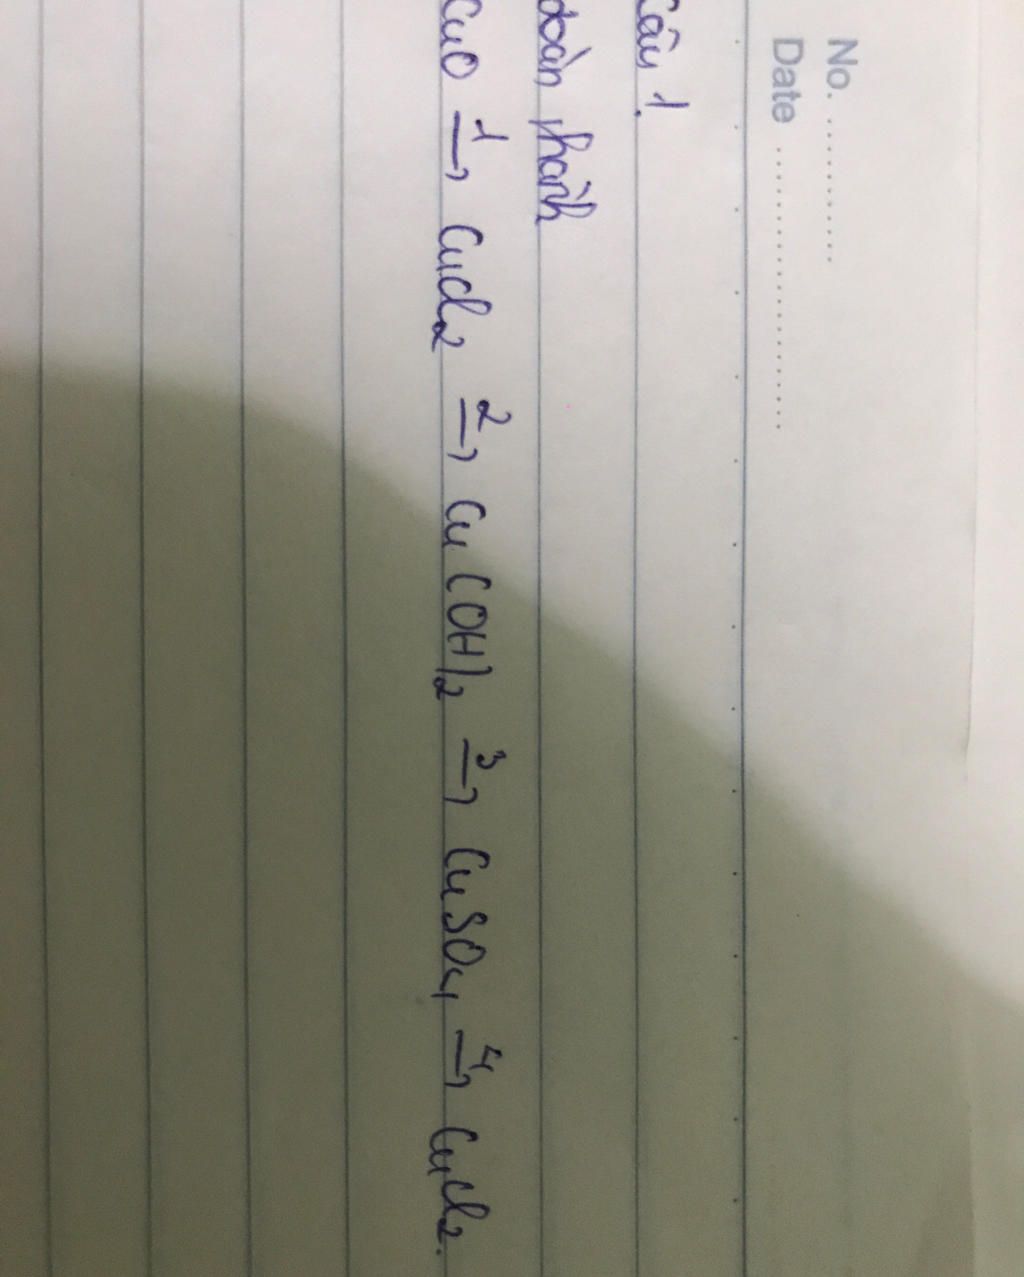 No. ............
Date ........................
Câu 1.
đoàn phành
CuO 1→ CuCl2 2→ Cu(OH)2 3→ CuSO4 4→ CuCl2.